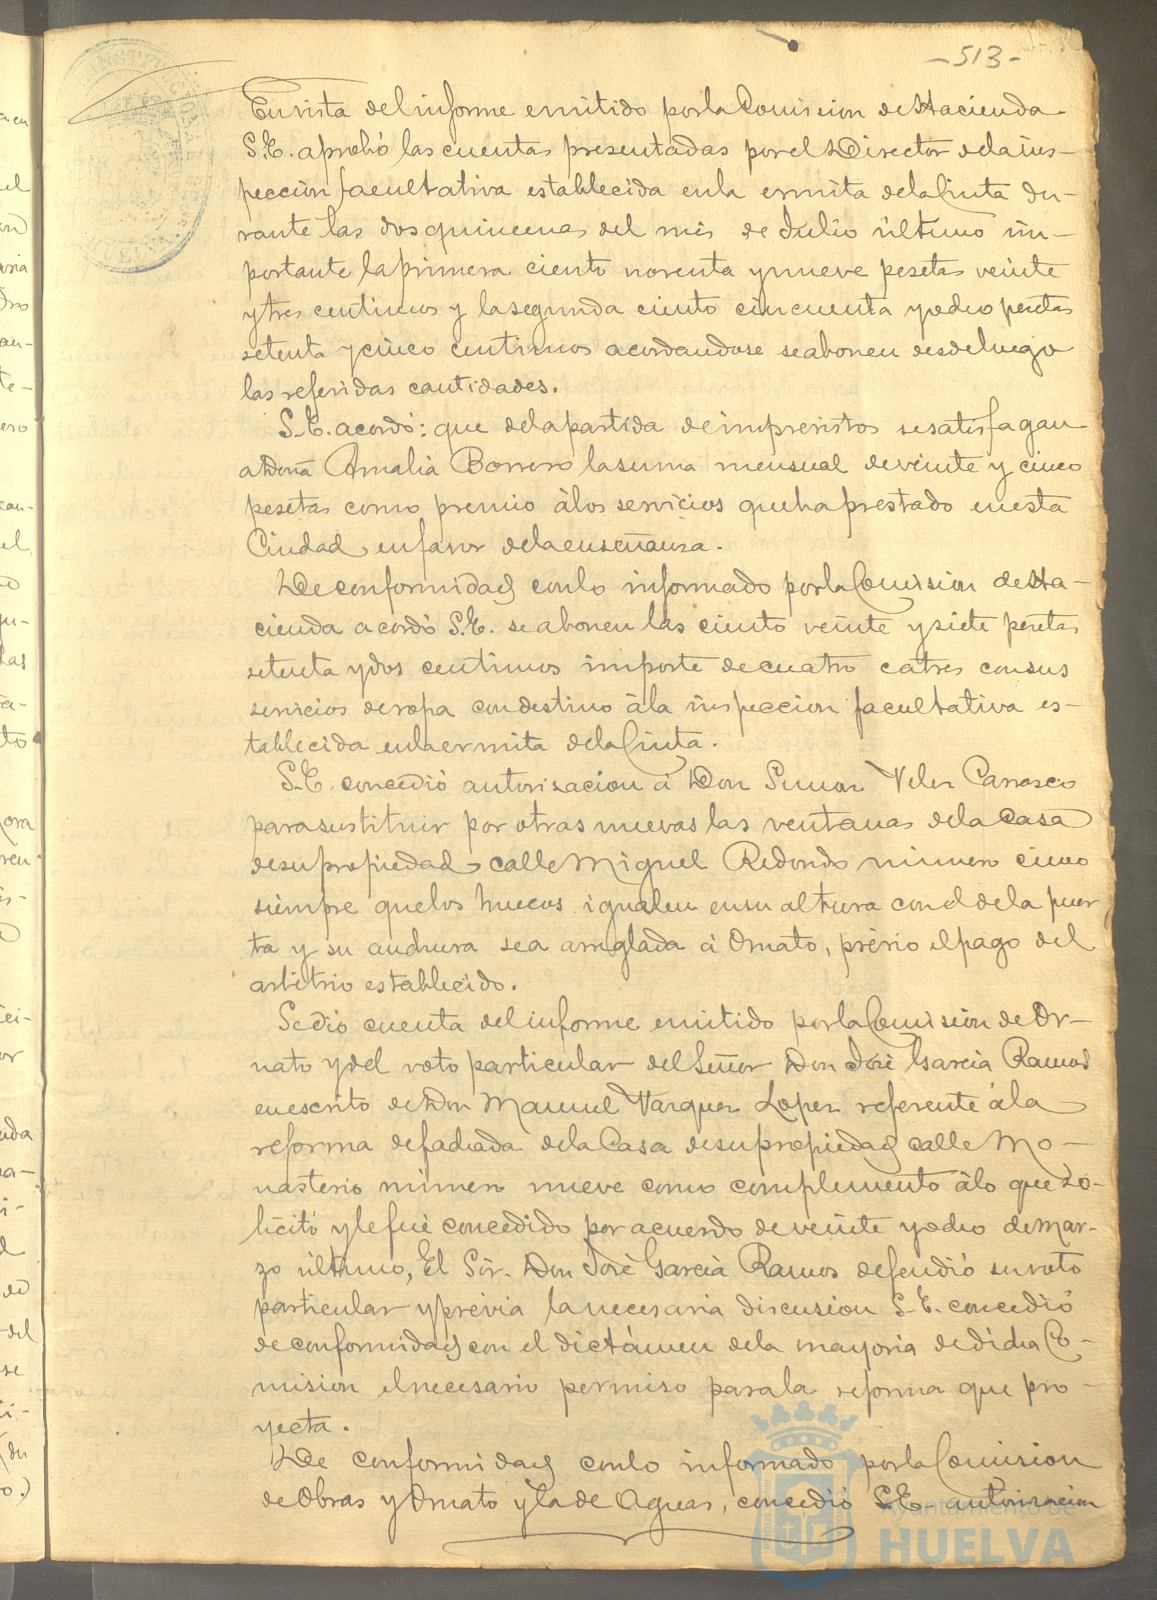 -513-
En vista del informe emitido por la Comision de Hacienda
S.E. aprobó las cuentas presentadas por el Director de la ins-
peccion facultativa establecida en la ermita de la Cinta du-
rante las dos quincenas del mes de Julio último im-
portante la primera ciento noventa y nueve pesetas veinte
y tres centimos y la segunda ciento cincuenta y ocho pesetas
setenta y cinco centimos acordandose se abonen desde luego
las referidas cantidades.
S.E. acordó: que de la partida de imprevistos se satisfagan
a Doña Amalia Borrero la suma mensual de veinte y cinco
pesetas como premio á los servicios que ha prestado en esta
Ciudad en favor de la enseñanza.
De conformidad con lo informado por la Comision de Ha-
cienda acordó S.E. se abonen las ciento veinte y siete pesetas
setenta y dos centimos importe de cuatro catres con sus
servicios de ropa con destino á la inspeccion facultativa es-
tablecida en la ermita de la Cinta.
S.E. concedió autorisacion á Don Simon Velez Carrasco
para sustituir por otras nuevas las ventanas de la Casa
de su propiedad calle Miguel Redondo número cinco
siempre que los huecos igualen en su altura con el de la puer
ta y su anchura sea arreglada á Ornato, prévio el pago del
arbitrio establecido.
Se dió cuenta del informe emitido por la Comision de Or-
nato y del voto particular del Señor Don José Garcia Ramos
en escrito de Don Manuel Vazquez Lopez referente á la
reforma de fachada de la Casa de su propiedad calle Mo-
nasterio número nueve como complemento á lo que so-
licitó y le fué concedido por acuerdo de veinte y ocho de Mar-
zo último, El Sór. Don José Garcia Ramos defendió su voto
particular y prévia la necesaria discusion S.E. concedió
de conformidad con el dictámen de la mayoria de dicha Co-
mision el necesario permiso para la reforma que pro-
yecta.
De conformidad con lo informado por la Comision
de Obras y Ornato y la de Aguas, concedió S.E. autorizacion
Ayuntamiento de
HUELVA